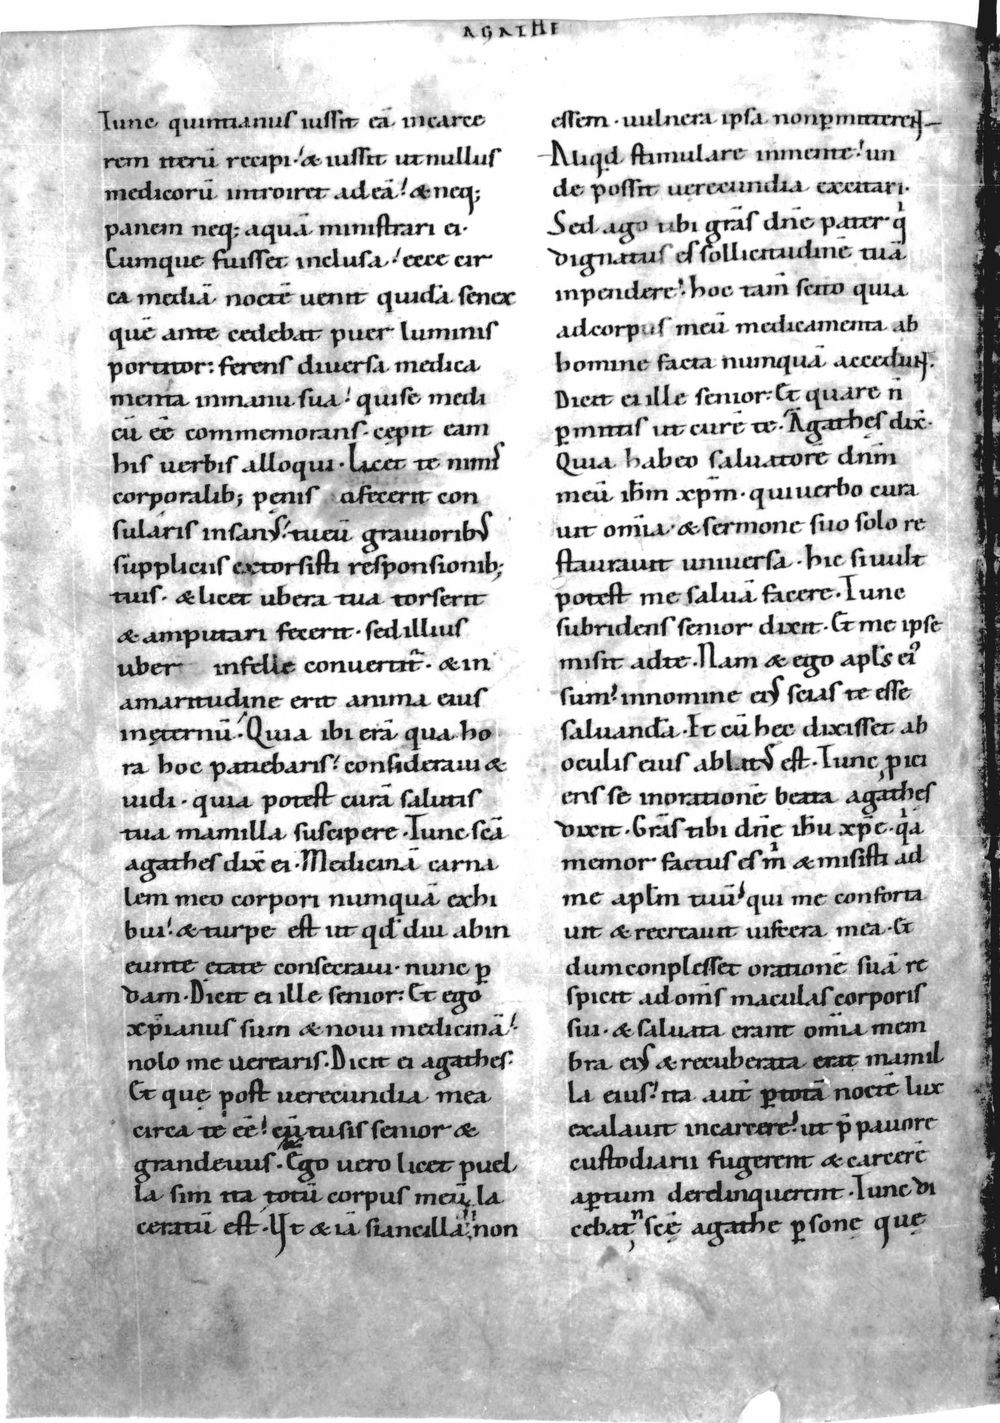 AGATHE
Tunc quintianus iussit eā in carce
rem iterū recipi. & iussit ut nullus
medicorū introiret ad eā. & neq;
panem neq; aquā ministrari ei.
Cumque fuisset inclusa. ecce cir
ca mediā noctē uenit quidā senex
quē ante cedebat puer luminis
portitor: ferens diuersa medica
menta in manu sua. qui se medi
cū eē commemorans. cępit eam
his uerbis alloqui. Licet te nimis
corporalib; penis afecerit con
sularis insanus. tu eū grauioribus
suppliciis extorsisti responsionib;
tuis. & licet ubera tua torserit
& amputari fecerit. sed illius
uber in felle conuertit̄. & in
amaritudine erit anima eius
in ęternū. Quia ibi erā qua ho
ra hoc patiebaris. consideraui &
uidi. quia potest curā salutis
tua mamilla suscipere. Tunc scā
agathes dix̄ ei. Medicinā carna
lem meo corpori numquā exhi
bui. & turpe est ut qđ diu ab in
eunte etate conseruaui. nunc ꝑ
dam. Dicit ei ille senior: Et ego
xp̄ianus sum & noui medicinā.
nolo me uerearis. Dicit ei agathes.
Et que post uerecundia mea
circa te eē. cū tu sis senior &
grandeuus. Ego uero licet puel
la sim ita totū corpus meū la
ceratū est. Ut & iā si ancilla non
essem. uulnera ipsa non ꝑmitterent
Aliqd stimulare in mente. un
de possit uerecundia excitari.
Sed ago tibi grās dn̄e pater qi
dignatus es sollicitudinē tuā
inpendere. hoc tam̄ scito quia
ad corpus meū medicamenta ab
homine facta numquā accedunt.
Dicit ei ille senior: Et quare n̄
ꝑmittis ut curē te. Agathes dix̄.
Quia habeo saluatorē dn̄m
meū ih̄m xp̄m. qui uerbo cura
uit om̄ia. & sermone suo solo re
staurauit uniuersa. hic si uult
potest me saluā facere. Tunc
subridens senior dixit. Et me ipse
misit ad te. Nam & ego apls ei'
sum. in nomine eius scias te esse
saluandā. Et cū hec dixisset ab
oculis eius ablatus est. Tunc p̄ici
ens se in orationē beata agathes
dixit. Grās tibi dn̄e ih̄u xp̄e. qa
memor factus es m̄ & misisti ad
me aplm tuū qui me conforta
uit & recreauit uiscera mea. Et
dum conplesset orationē suā re
spicit ad om̄s maculas corporis
sui. & saluata erant om̄ia mem
bra eius & recuberata erat mamil
la eius. ita aut̄ ꝑ totā noctē lux
exalauit in carcere. ut p̄ pauore
custodiarii fugerent & carcerē
aꝑtum derelinquerent. Tunc di
cebant scē agathe ꝑsonę quę